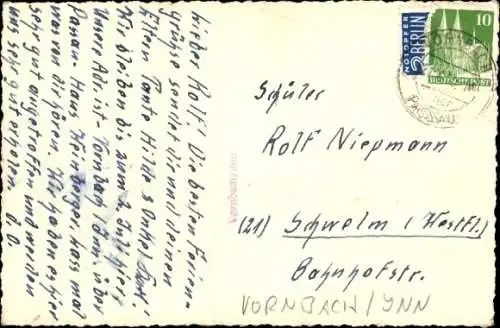 Lieber Rolf! Die besten Ferien-
grüße sendet dir und deinen
Eltern Tante Hilde & Onkel
Wir bleiben bis zum
Unsere Adr. ist: Vornbach / Inn über
Passau. Haus Weinberger, lass mal
was von dir hören. Wir haben es hier
sehr gut angetroffen und werden
uns sehr gut erholen. D.O.
NOTOPFER
2 BERLIN
10
DEUTSCHE POST
PASSAU
Vornbach/Inn
Schüler
Rolf Niepmann
(21) Schwelm (Westfl.)
Bahnhofstr.
VORNBACH/YNN